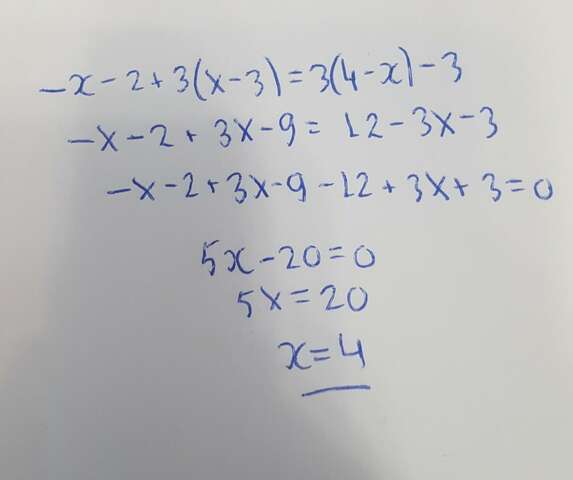 -x-2+3(x-3)=3(4-x)-3
-x-2+3x-9=12-3x-3
-x-2+3x-9-12+3x+3=0
5x-20=0
5x=20
x=4